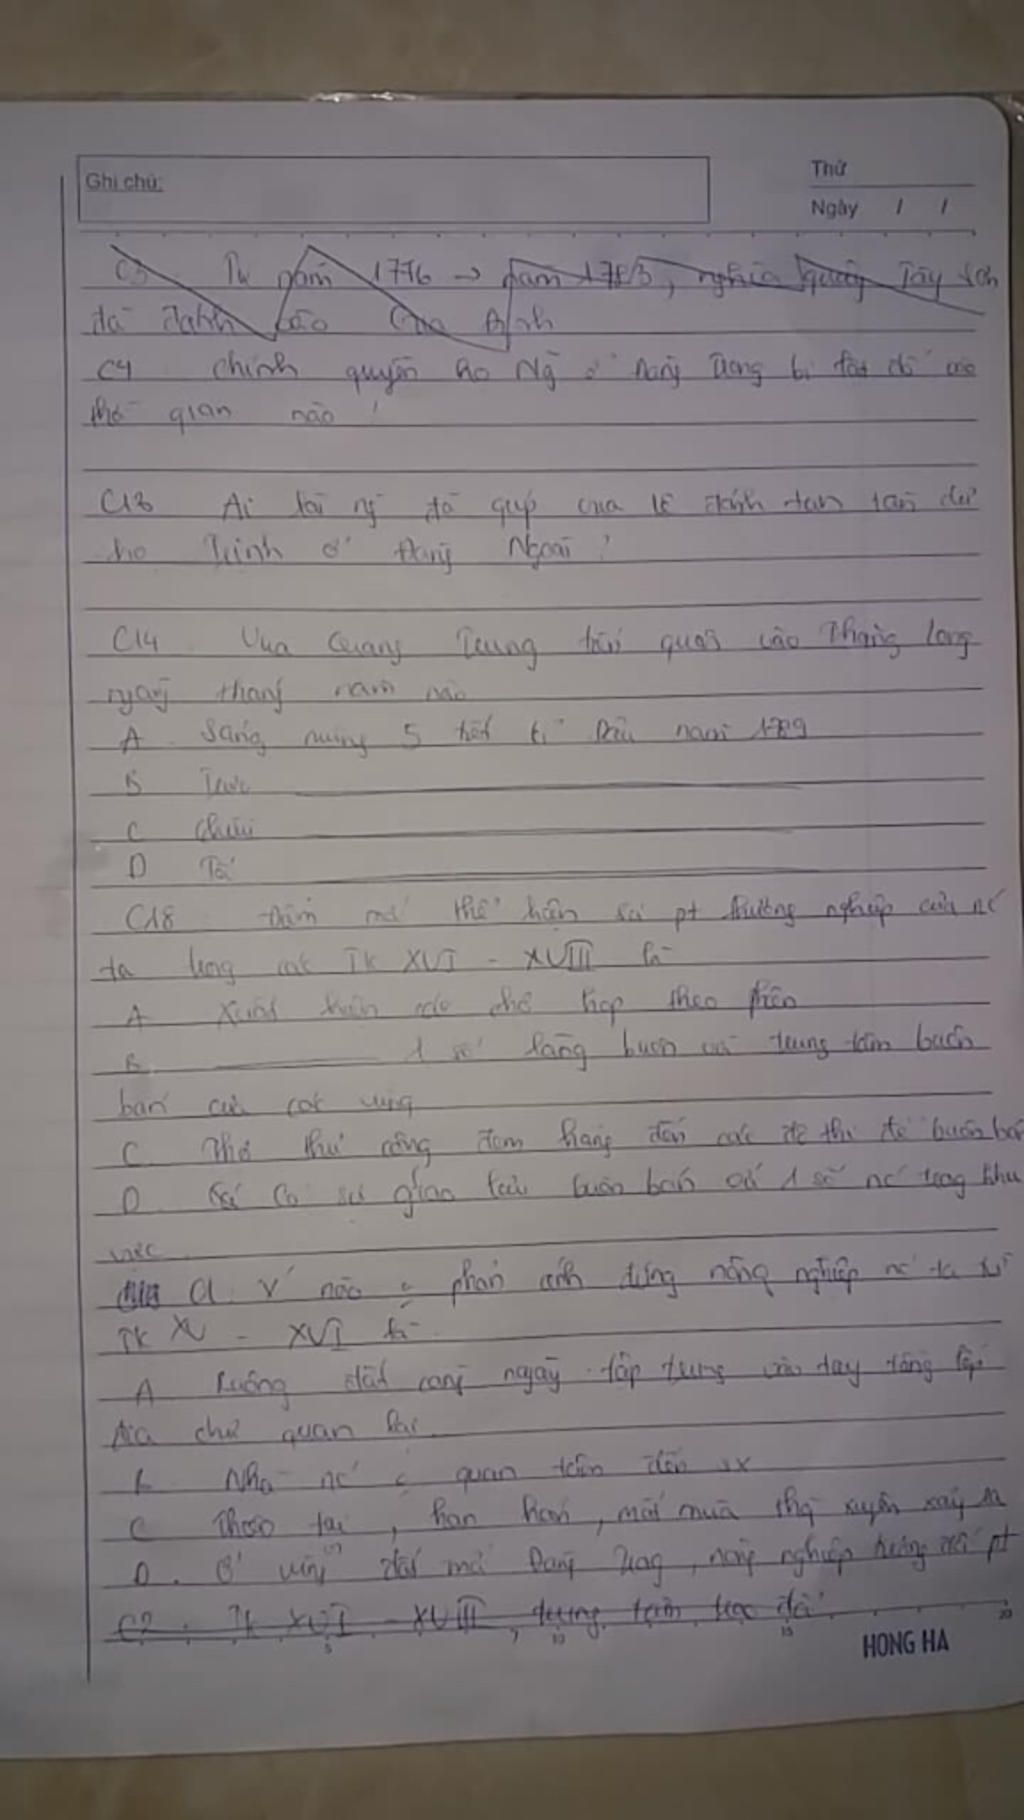 Ghi chú:
Thứ
Ngày / /
C3 Từ năm 1776 → năm 1783, nghĩa quân Tây Sơn
đã đánh vào Gia Định
C4 chính quyền họ Ng ở Đàng Trong bị lật đổ vào
thời gian nào ?
C13 Ai là ng đã giúp vua Lê đánh tan tàn dư
họ Trịnh ở Đàng Ngoài ?
C14 Vua Quang Trung tiến quân vào Thăng Long
ngày tháng năm nào
A Sáng mùng 5 tết Kỉ Dậu năm 1789
B Trưa
C Chiều
D Tối
C18 Điểm mới thể hiện sự pt thương nghiệp của nc
ta trong các TK XVI - XVIII là
A Xuất hiện các chợ họp theo phiên
B 1 số làng buôn và trung tâm buôn
bán của các vùng
C Thợ thủ công đem hàng đến các đô thị để buôn bán
D Đã có sự giao lưu buôn bán với 1 số nc trong khu
vực
C1. Ý nào phản ánh đúng nông nghiệp nc ta từ
TK XV - XVI là
A Ruộng đất càng ngày tập trung vào tay tầng lớp
địa chủ quan lại
B Nhà nc quan tâm đến sx
C Thiên tai, hạn hán, mất mùa thg xuyên xảy ra
D. Ở vùng đất mới Đàng Trong, nông nghiệp pt
C2. TK XVI - XVIII, trung tâm
5 10 15 20
HONG HA